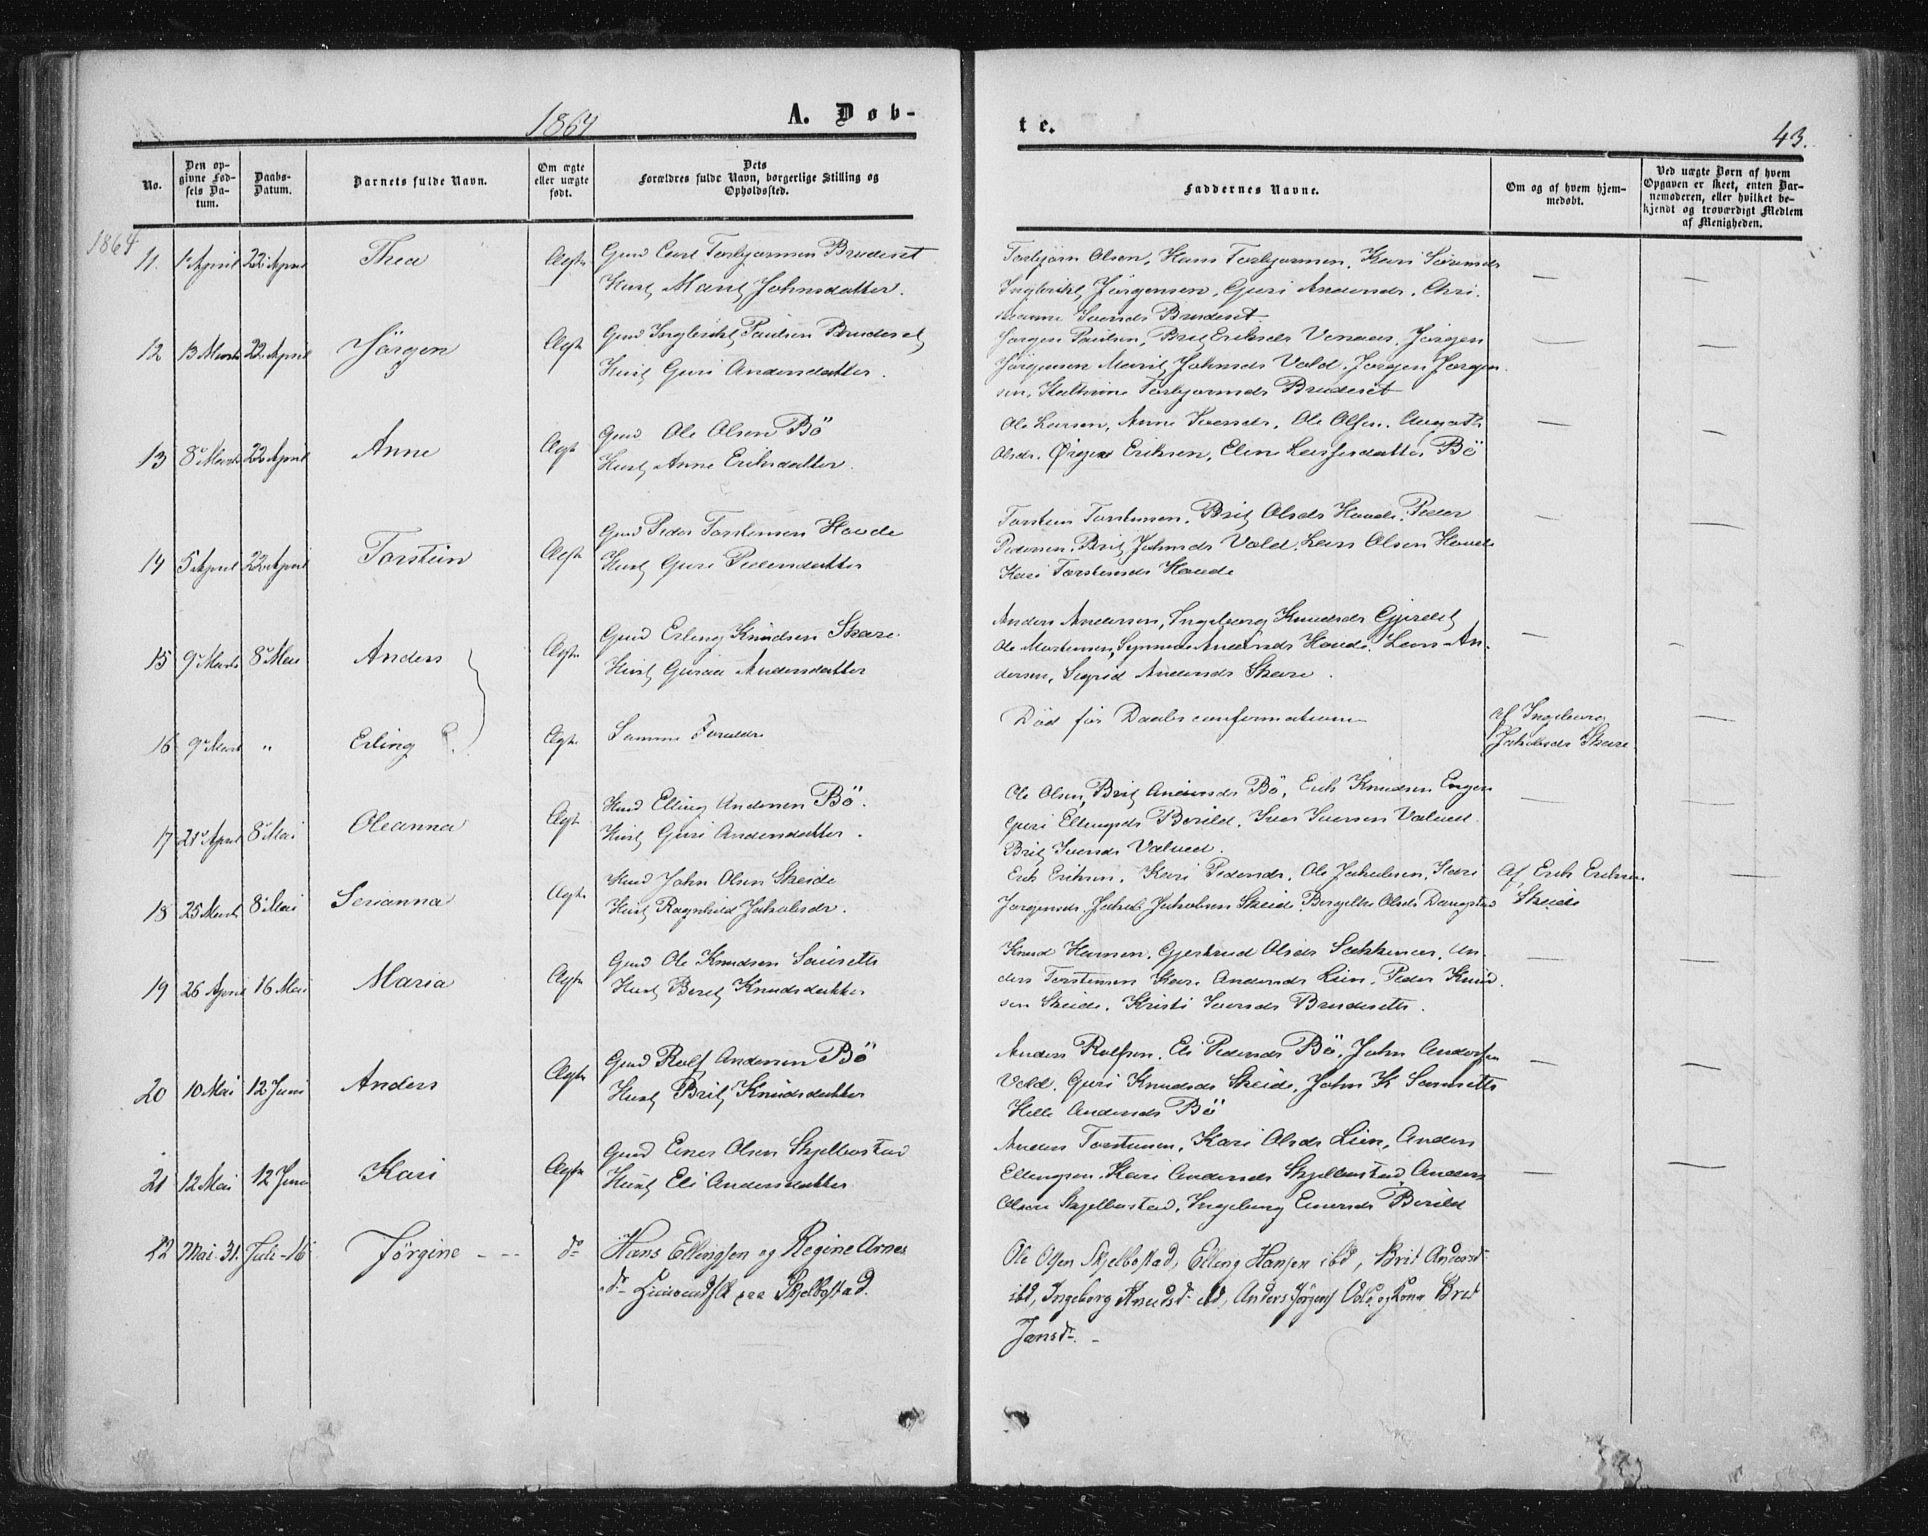 1864
A. Døb-
te.
43.
No.
Den op-
givne Fød-
sels Da-
tum.
Daabs-
Datum.
Barnets fulde Navn.
Om ægte
eller uægte
født.
Dets
Forældres fulde Navn, borgerlige Stilling og
Opholdssted.
Faddernes Navne.
Om og af hvem hjem-
medøbt.
Ved uægte Børn af hvem
Opgaven er skeet, enten Bar-
nemoderen, eller hvilket be-
kjendt og troværdigt Medlem
af Menigheden.
1864
11. 1 April 22 April Thea Ægte Gmd Carl Torbjørnsen Brudeset
Hust Marit Johnsdatter.
Torbjørn Olsen, Hans Torbjørnsen, Kari Sørensds
Ingbrikt Jørgensen, Guri Andersds, Chri-
Iversds Brudeset.
12 13 Marts 22 April Jörgen Ægte Gmd Ingbrikt Paulsen Brudeset
Hust Guri Andersdatter.
Jørgen Paulsen, Brit Eriksds Venaas, Jörgen
Jörgensen Marit Johnsds Vold, Jørgen Jørgen-
sen, Kathrine Torbjørnsds Brudeset
13 8 Marts 22 April Anne Ægte Gmd Ole Olsen Bö
Hust Anne Eriksdatter.
Ole Larsen, Anne Iversds, Ole Olsen,
Olsds, Ørjen Eriksen, Elen Larsdatter Bö
14 5 April 22 April Torstein Ægte Gmd Peder Torstensen Hovde
Hust Guri Pedersdatter
Torstein Torstensen, Brit Olsds Hovde, Peder
Pedersen, Brit Johnsds Vold, Lars Olsen Hovde
Kari Torstensds Hovde
15 9 Marts 8 Mai Anders Ægte Gmd Erling Knudsen Skare
Hust Guraa Andersdatter
Anders Andersen, Ingeborg Knudsds Gjerdet
Ole Mortensen, Synneve Andersds Hovde, Lars An-
dersen, Sigrid Andersds Skare.
16 9 Marts " Erling Ægte Samme Foreldre
Död för Daabsconfirmationen
af Ingeborg
Jakobsds Skare
17 21 April 8 Mai Oleanna Ægte Hmd Elling Andersen Bö.
Hust Guri Andersdatter.
Ole Olsen, Brit Andersds Bö, Erik Knudsen Engen
Guri Ellingsds Berild, Iver Iversen Valved
Brit Iversds Valved.
18 25 Marts 8 Mai Serianna Ægte Hmd John Olsen Skeide
Hust Ragnhild Jakobsdr.
Erik Eriksen, Kari Pedersds, Ole Jakobsen, Kari
Jørgensds, Jakob Jakobsen Skeide, Olsds
Af Erik Eriksen
Skeide
19 26 April 16 Mai Maria Ægte Gmd Ole Knudsen
Hust Berit Knudsdatter
Knud Hansen, Gjertrud Olsds Sækkenes, An-
ders Torstensen Kari Andersds Lien, Peder Knud-
sen Skeide, Kristi Iversds Brudeseth.
20 10 Mai 12 Juni Anders Ægte Gmd Rolf Andersen Bö
Hust Brit Knudsdatter
Anders Rolfsen, Eli Pedersds Bö, John Andersen
Vold, Guri Knudsds Skeide, John K
Andersds Bö
21 12 Mai 12 Juni Kari Ægte Gmd Einer Olsen Skjelbostad
Hust Eli Andersdatter
Anders Torstensen, Kari Olsds Lien, Anders
Ellingsen, Kari Andersds Skjelbostad, Anders
Olsen Skjelbostad, Ingeborg Einersds Berild
22 Mai 31. Juli-16 Jørgine do Hans Ellingsen og Regine Arnes
dr paa Skjelbostad.
Ole Olsen Skjelbostad, Elling Hansen ibd, Brit Andersdr
ibd, Ingeborg Knudsdr ibd, Anders Jørgens Vold og Kone Brit
Jensdr. -